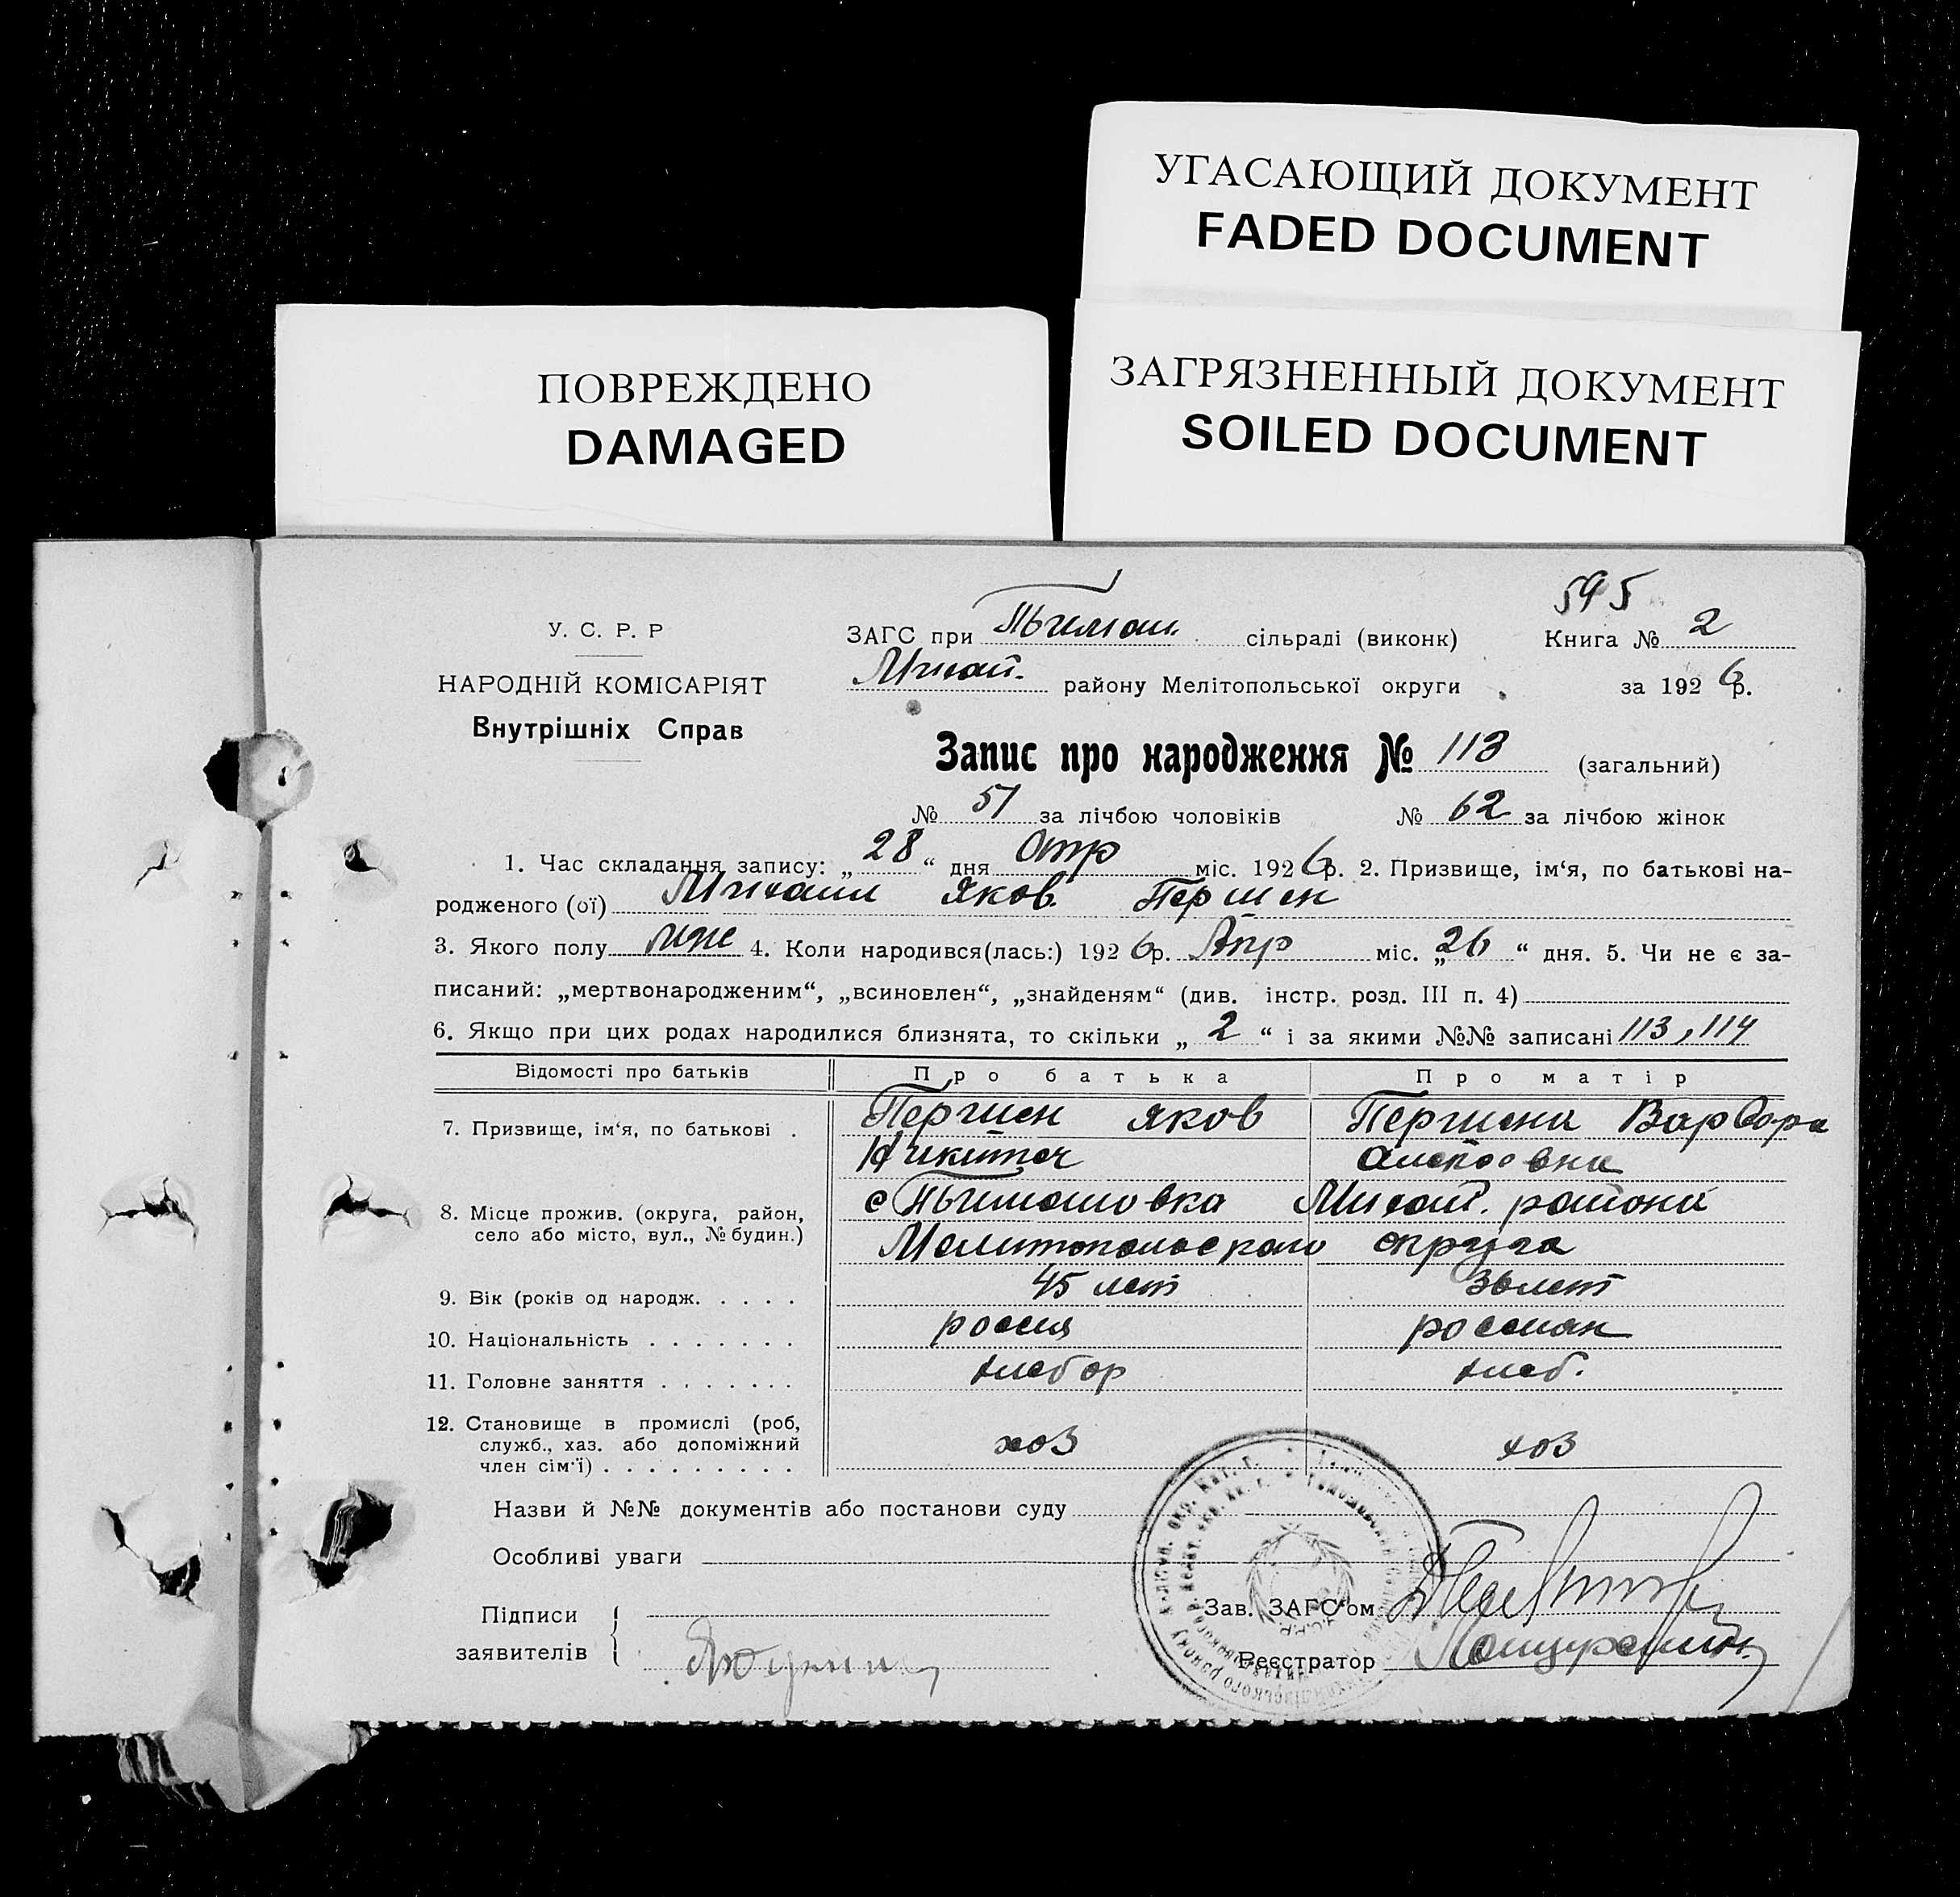 УГАСАЮЩИЙ ДОКУМЕНТ
FADED DOCUMENT
ПОВРЕЖДЕНО
DAMAGED
ЗАГРЯЗНЕННЫЙ ДОКУМЕНТ
SOILED DOCUMENT
595
У. С. Р. Р
НАРОДНІЙ КОМІСАРІЯТ
Внутрішніх Справ
ЗАГС при Тимош. сільраді (виконк) Книга № 2
Михай. району Мелітопольської округи за 1926р.
Запис про народження № 113 (загальний)
№ 51 за лічбою чоловіків № 62 за лічбою жінок
1. Час складання запису: „28“ дня Апр міс. 1926р. 2. Призвище, ім‘я, по батькові на-
родженого (ої) Михаил Яков. Першен
3. Якого полу муж 4. Коли народився(лась:) 1926р. Апр міс. „26“ дня. 5. Чи не є за-
писаний: „мертвонародженим“, „всиновлен“, „знайденям“ (див. інстр. розд. III п. 4)
6. Якщо при цих родах народилися близнята, то скільки „2“ і за якими №№ записані 113, 114
Відомості про батьків Про батька Про матір
7. Призвище, ім‘я, по батькові . Першен Яков Першена Варвара
Никитич
8. Місце прожив. (округа, район, с Тимошовка Михай. района
село або місто, вул., № будин.) Мелитопольского округа
9. Вік (років од народж. . . . . 45 лет 36 лет
10. Національність . . . . . . .
11. Головне заняття . . . . . . . хлебор хлеб.
12. Становище в промислі (роб,
служб., хаз. або допоміжний хоз хоз
член сім‘ї) . . . . . . . . .
Назви й №№ документів або постанови суду
Особливі уваги
Підписи
заявителів
Зав. ЗАГС‘ом
Реєстратор